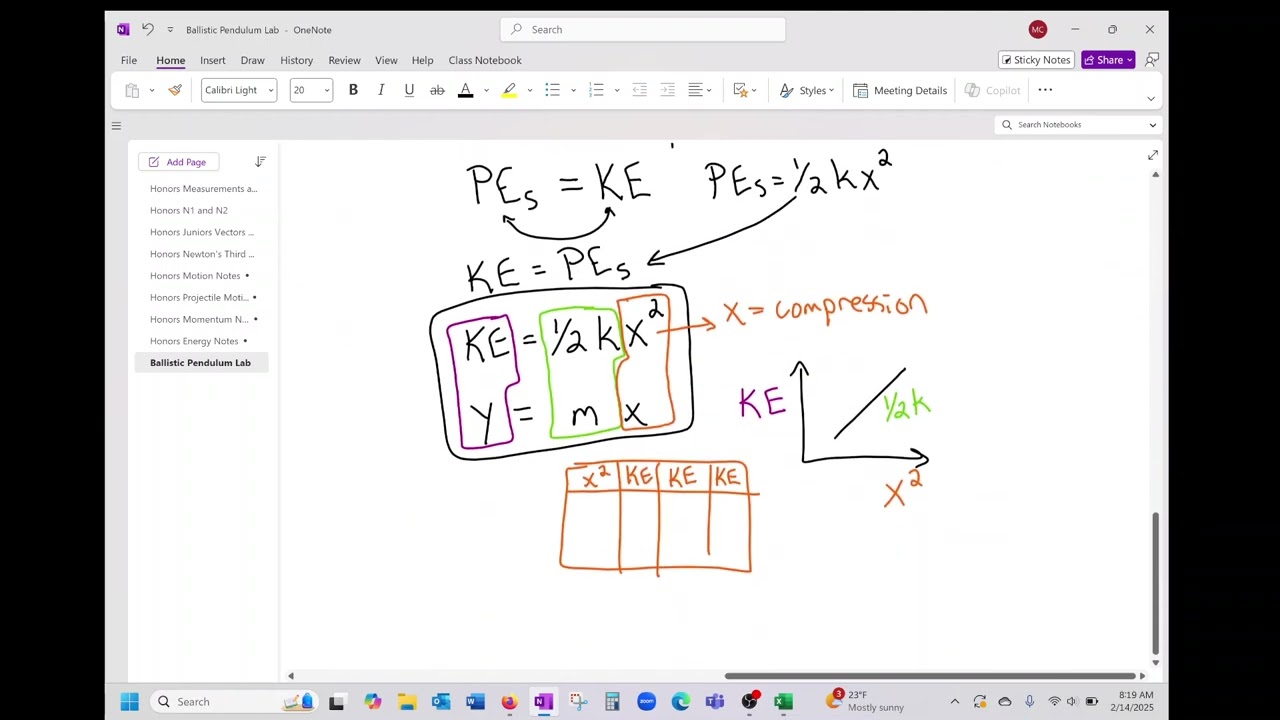 Ballistic Pendulum Lab - OneNote
Search
MC
File Home Insert Draw History Review View Help Class Notebook
Sticky Notes
Share
Calibri Light 20 B I U ab A
Styles
Meeting Details
Copilot
Search Notebooks
Add Page
Honors Measurements a...
Honors N1 and N2
Honors Juniors Vectors ...
Honors Newton's Third ...
Honors Motion Notes
Honors Projectile Moti...
Honors Momentum N...
Honors Energy Notes
Ballistic Pendulum Lab
PEs = KE PEs = 1/2 k x²
KE = PEs
KE = 1/2 k x² → x = compression
y = m x
KE 1/2 k
x²
x² KE KE KE
Search
3
23°F
Mostly sunny
8:19 AM
2/14/2025